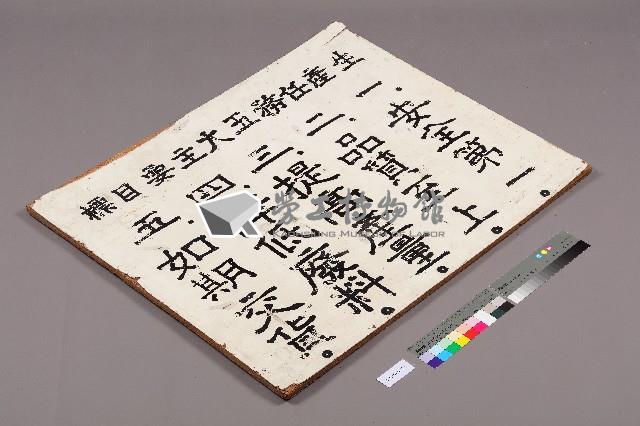 生產任務五大主要目標
一．安全第一。
二．品質至上。
三．提高產量。
四．減低廢料。
五．如期交貨。
勞工博物館
KAOHSIUNG MUSEUM OF LABOR